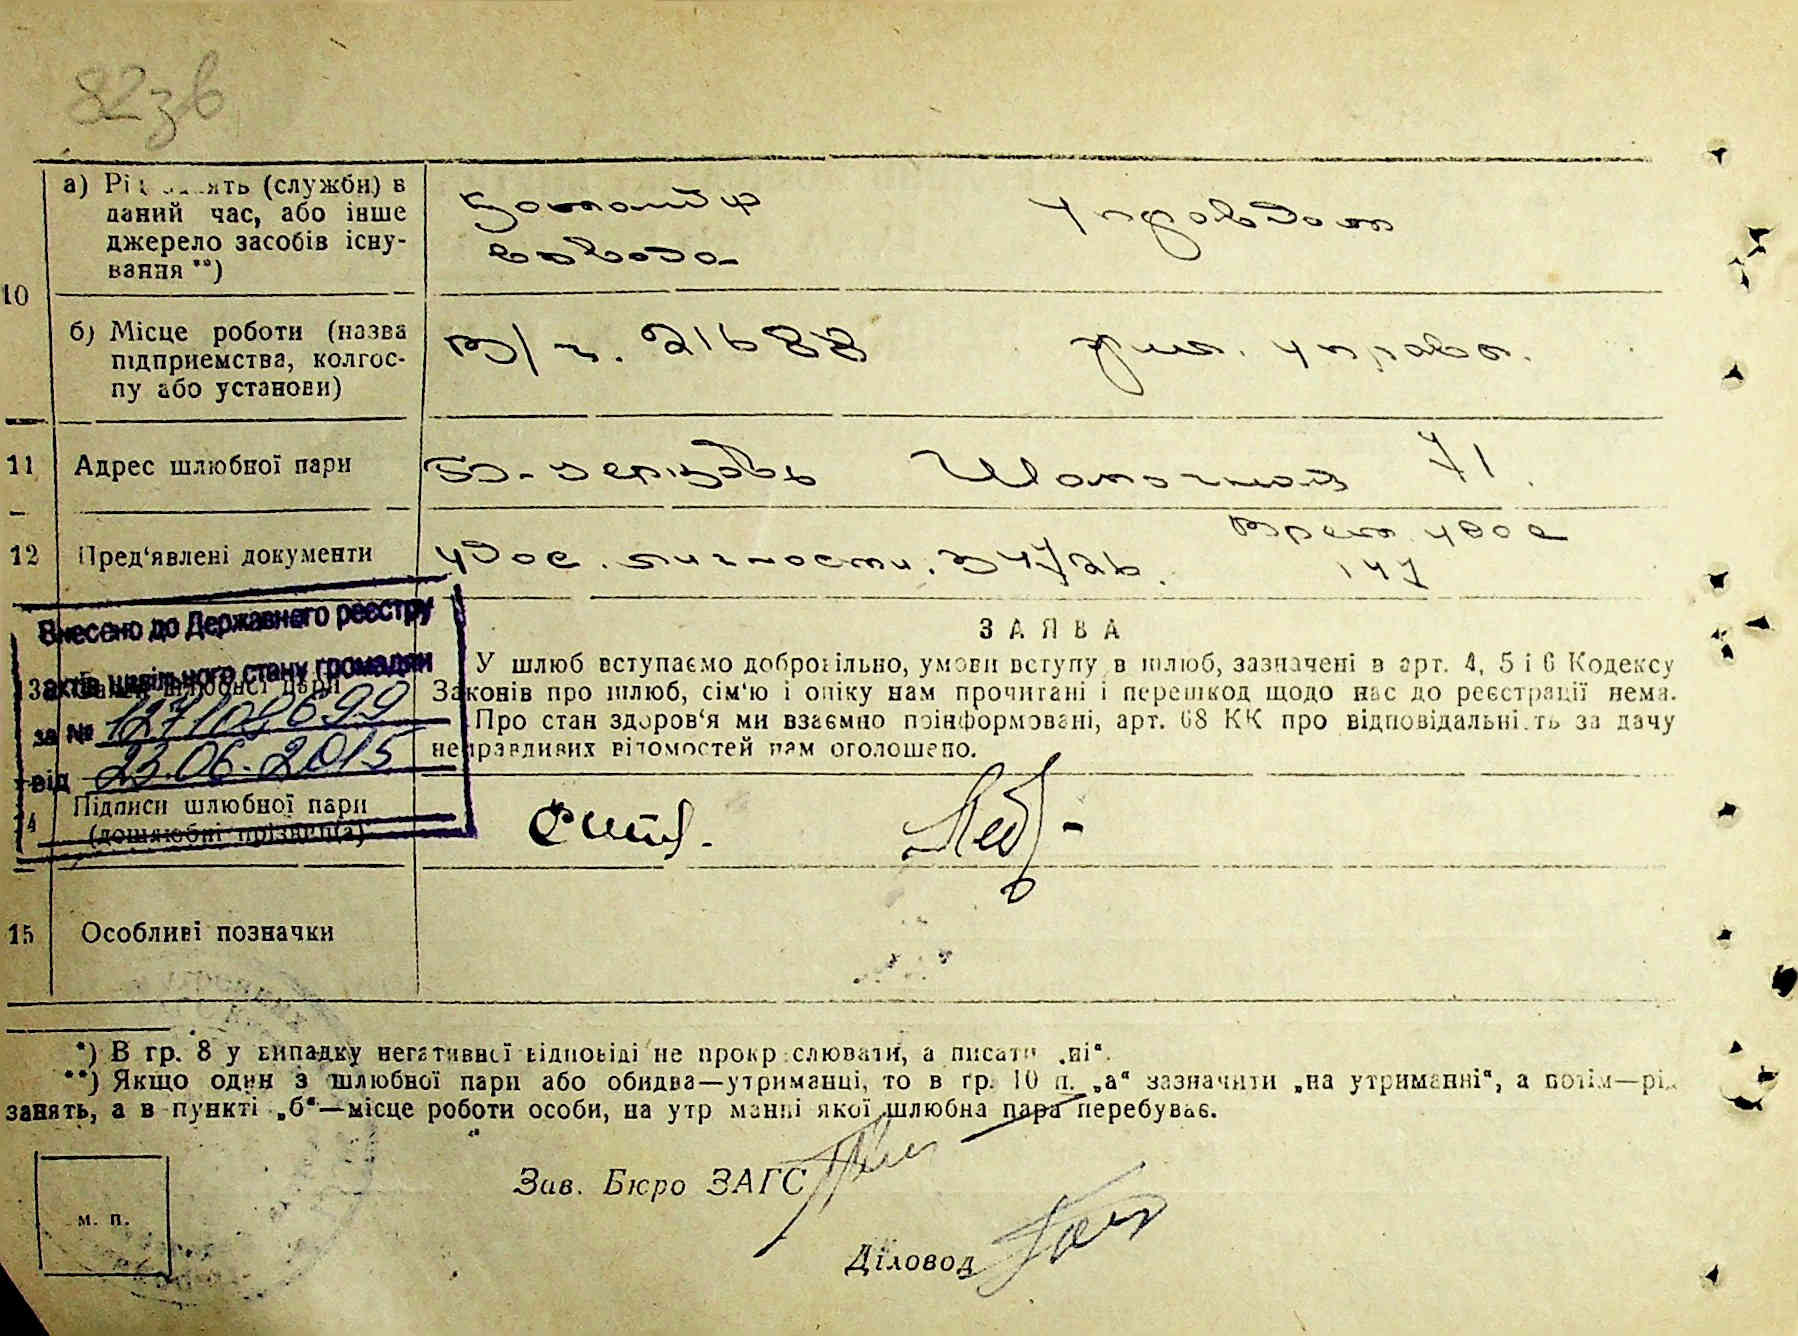 82зв
а) Рід занять (служби) в
даний час, або інше
джерело засобів існу-
вання **)
командир
взвода
управдом
10
б) Місце роботи (назва
підприємства, колгос-
пу або установи)
в/ч. 21688
жил. управл.
11 Адрес шлюбної пари
Б-Церковь Шолочная 71.
12 Пред'явлені документи
удос. личности. 3472б.
Врем. удос
147
Внесено до Державного реєстру
актів цивільного стану громадян
за № 127109699
від 23.06.2015
ЗАЯВА
У шлюб вступаємо добровільно, умови вступу в шлюб, зазначені в арт. 4, 5 і 6 Кодексу
Законів про шлюб, сім'ю і опіку нам прочитані і перешкод щодо нас до реєстрації нема.
Про стан здоров'я ми взаємно поінформовані, арт. 68 КК про відповідальність за дачу
неправдивих відомостей нам оголошено.
14
Підписи шлюбної пари
(дошлюбні прізвища)
15 Особливі позначки
*) В гр. 8 у випадку негативної відповіді не прокреслювати, а писати „ні“.
**) Якщо один з шлюбної пари або обидва—утриманці, то в гр. 10 п. „а“ зазначити „на утриманні“, а потім—рід
занять, а в пункті „б“—місце роботи особи, на утриманні якої шлюбна пара перебуває.
Зав. Бюро ЗАГС
м. п.
Діловод